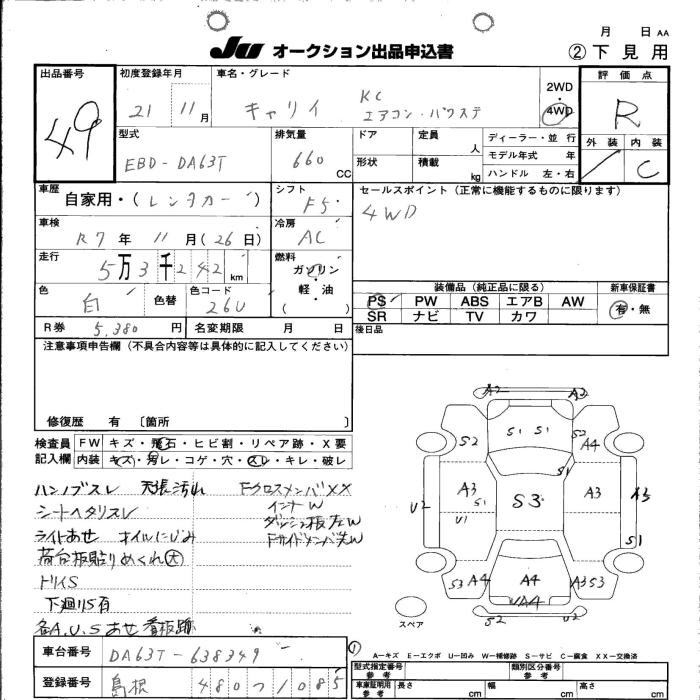 月 日 AA
JU オークション出品申込書
②下見用
出品番号
49
初度登録年月
21 11月
車名・グレード
キャリイ KC
エアコン・パワステ
2WD・4WD
評価点
R
外装 内装
C
型式
EBD-DA63T
排気量
660 CC
ドア
定員 人
ディーラー・並行
モデル年式 年
形状
積載 kg
ハンドル 左・右
車歴
自家用・(レンタカー)
シフト
F5
セールスポイント(正常に機能するものに限ります)
4WD
車検
R7年 11月(26日)
冷房
AC
走行
5万3千242km
燃料
ガソリン
軽・油
( )
色
白
色替
色コード
26U
装備品(純正品に限る)
PS PW ABS エアB AW
SR ナビ TV カワ
新車保証書
有・無
R券 5,380円
名変期限 月 日
後日品
注意事項申告欄(不具合内容等は具体的に記入してください)
修復歴 有 〔箇所 〕
検査員記入欄
FW キズ・飛石・ヒビ割・リペア跡・X要
内装 キズ・汚レ・コゲ・穴・スレ・キレ・破レ
ハンドルスレ 天張汚れ FクロスメンバXX
シートヘタリスレ インナーW
ライトあせ オイルにじみ ダッシュ板左W
荷台板貼りめくれ大 FサイドメンバW
トリイS
下廻りS有
各A.U.Sあせ 看板跡
A2 A2
S2 S1 S1 S2 A4
S1
U2 A3 S1 U1 S3 A3 A3 S1
S3 A4 A4 A3 S3
UA4
S2 U2
スペア
A-キズ E-エクボ U-凹み W-補修跡 S-サビ C-腐食 XX-交換済
車台番号
DA63T-638349
登録番号
島根 480つ1085
型式指定番号 参考
類別区分番号 参考
車庫証明用 参考
長さ cm 幅 cm 高さ cm